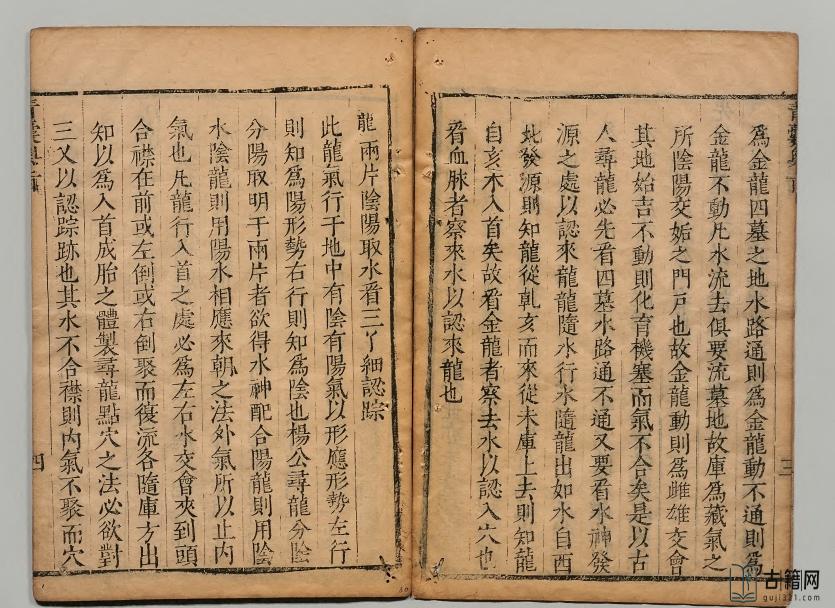 為金龍四墓之地水路通則為金龍動不通則為
金龍不動凡水流去俱要流墓地故庫為藏氣之
所陰陽交姤之門戸也故金龍動則為雌雄交會
其地始吉不動則化育機塞而氣不合矣是以古
人尋龍必先看四墓水路通不通又要看水神發
源之處以認來龍龍隨水行水隨龍出如水自酉
地發源則知龍從乹亥而來從未庫上去則知龍
自亥木入首矣故看金龍者察去水以認入穴也
看血脉者察來水以認來龍也
三
龍兩片陰陽取水看三丫細認踪
此龍氣行于地中有陰有陽氣以形應形勢左行
則知為陽形勢右行則知為陰也楊公尋龍分陰
分陽取明于兩片者欲得水神配合陽龍則用陰
水陰龍則用陽水相應來朝之法外氣所以止内
氣也凡龍行入首之處必為左右水交會夾到頭
合襟在前或左倒或右倒聚而復流各隨庫方出
知以為入首成胎之體製尋龍點穴之法必欲對
三叉以認踪跡也其水不合襟則内氣不聚而穴
四
古籍网
guji321.com